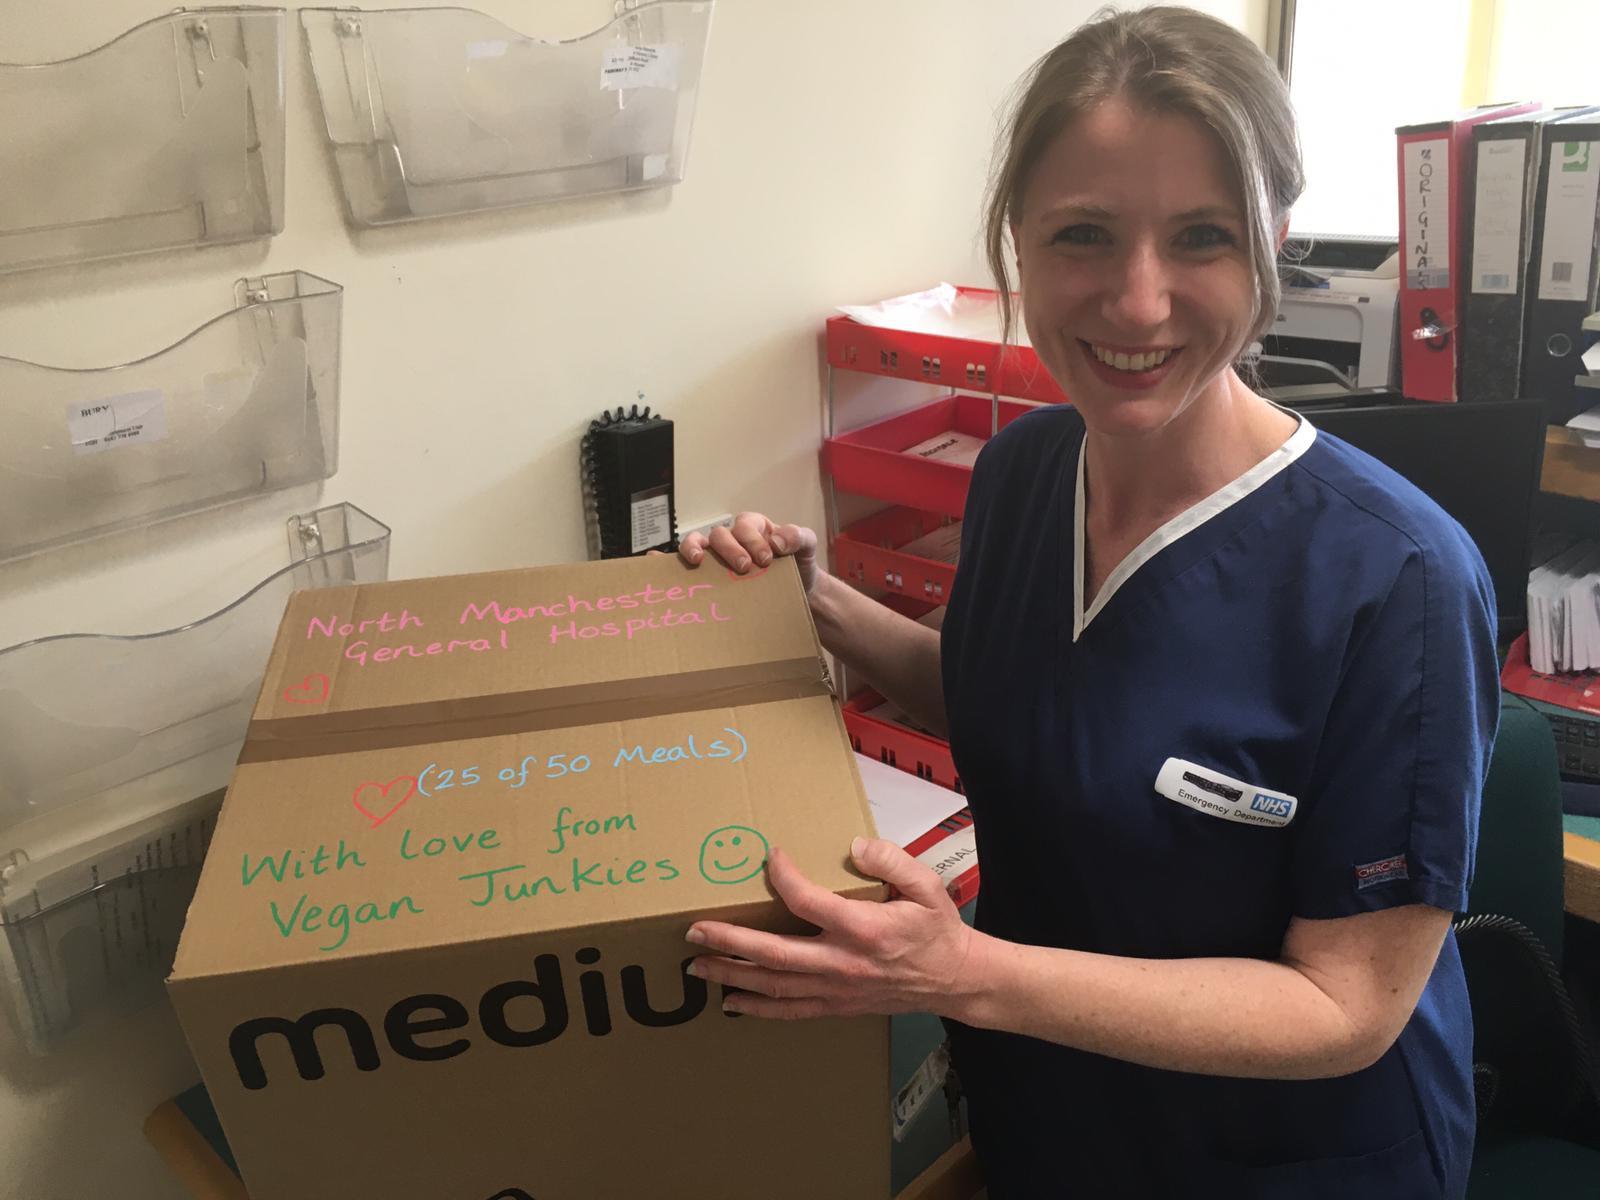 BURY
ORIGINAL
North Manchester
General Hospital
(25 of 50 Meals)
With love from
Vegan Junkies
medium
NHS
Emergency Department
CHEROKEE
ERNAL